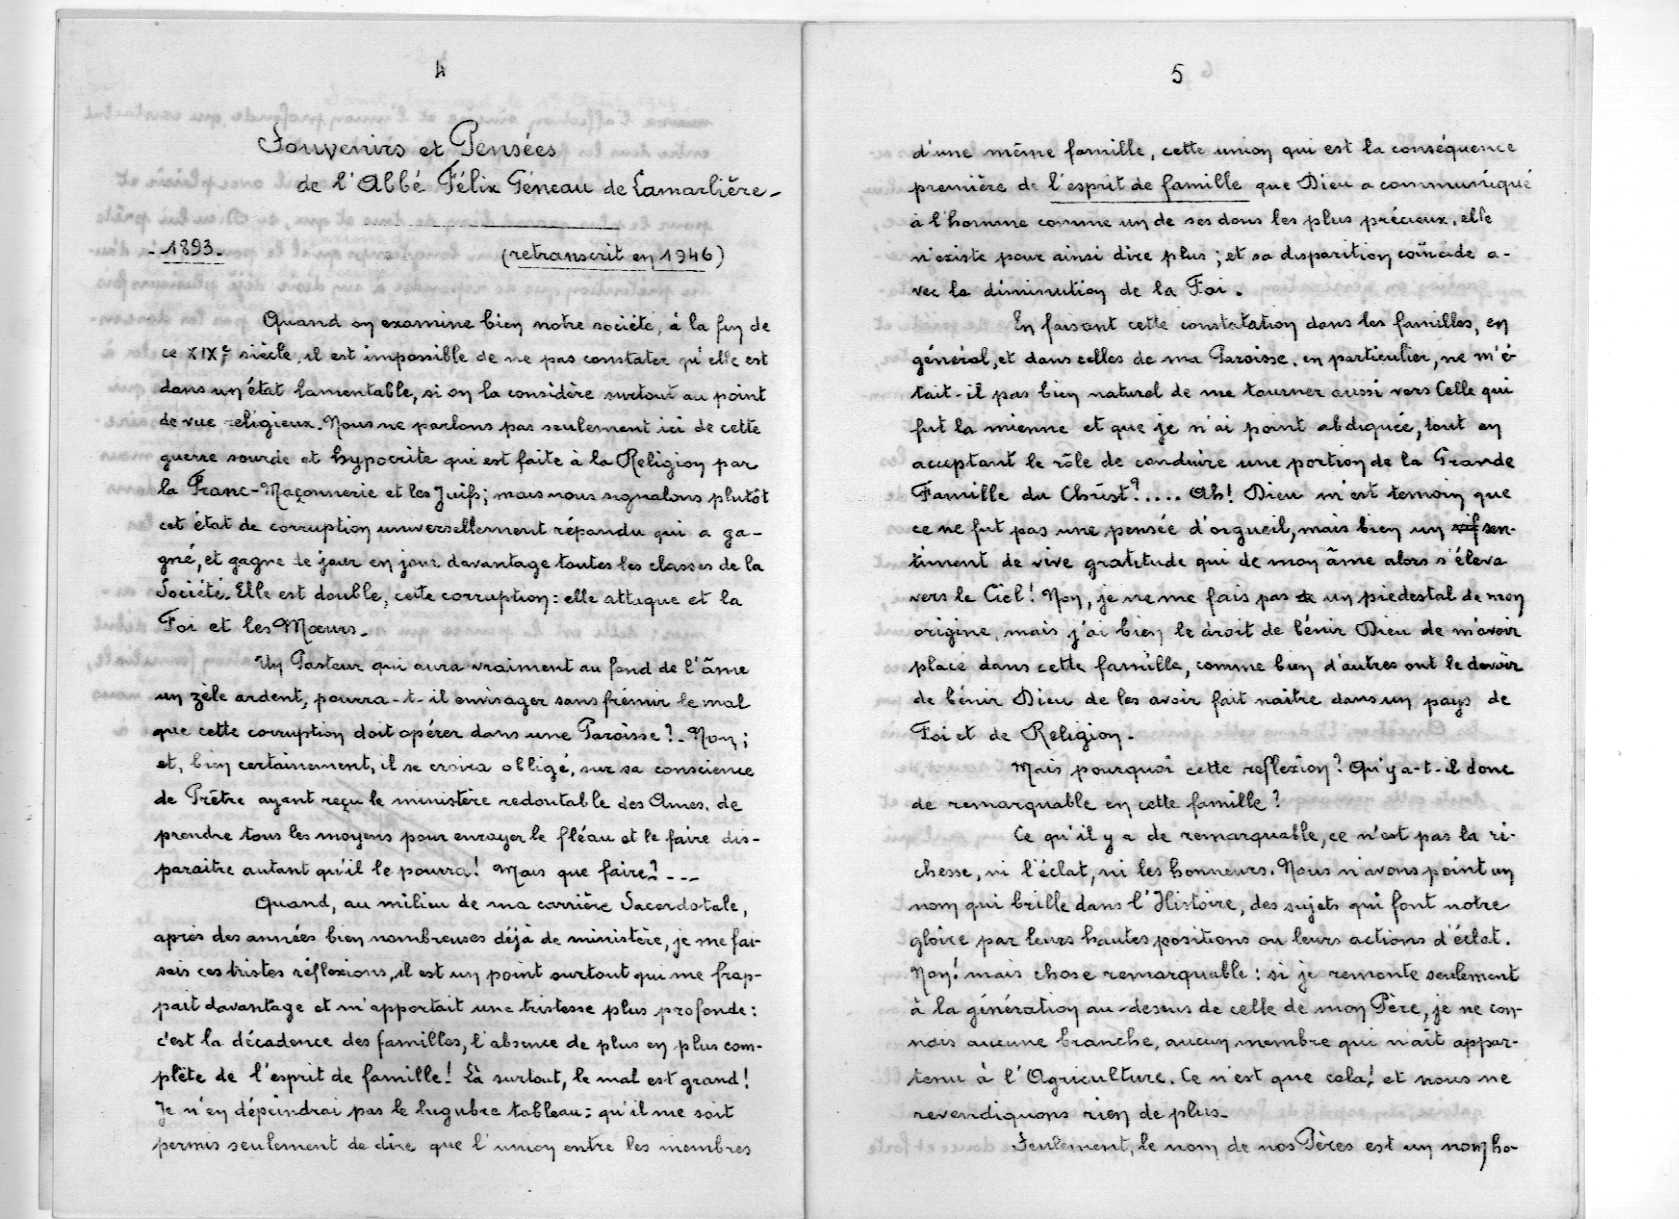 4
Souvenirs et Pensées
de l'Abbé Félix Géneau de Lamarlière -
- 1893 -
(retranscrit en 1946)
Quand on examine bien notre société, à la fin de
ce XIXe siècle, il est impossible de ne pas constater qu'elle est
dans un état lamentable, si on la considère surtout au point
de vue religieux. Nous ne parlons pas seulement ici de cette
guerre sourde et hypocrite qui est faite à la Religion par
la Franc-Maçonnerie et les Juifs; mais nous signalons plutôt
cet état de corruption universellement répandu qui a ga-
gné, et gagne de jour en jour davantage toutes les classes de la
Société. Elle est double, cette corruption: elle attaque et la
Foi et les Mœurs.
Un Pasteur qui aura vraiment au fond de l'âme
un zèle ardent, pourra-t-il envisager sans frémir le mal
que cette corruption doit opérer dans une Paroisse? - Non;
et, bien certainement, il se croira obligé, sur sa conscience
de Prêtre ayant reçu le ministère redoutable des Ames, de
prendre tous les moyens pour enrayer le fléau et le faire dis-
paraître autant qu'il le pourra! Mais que faire? ---
Quand, au milieu de ma carrière Sacerdotale,
après des années bien nombreuses déjà de ministère, je me fai-
sais ces tristes réflexions, il est un point surtout qui me frap-
pait davantage et m'apportait une tristesse plus profonde:
c'est la décadence des familles, l'absence de plus en plus com-
plète de l'esprit de famille! Là surtout, le mal est grand!
Je n'en dépeindrai pas le lugubre tableau: qu'il me soit
permis seulement de dire que l'union entre les membres
5
d'une même famille, cette union qui est la conséquence
première de l'esprit de famille que Dieu a communiqué
à l'homme comme un de ses dons les plus précieux, elle
n'existe pour ainsi dire plus; et sa disparition coïncide a-
vec la diminution de la Foi.
En faisant cette constatation dans les familles, en
général, et dans celles de ma Paroisse, en particulier, ne m'é-
tait-il pas bien naturel de me tourner aussi vers Celle qui
fut la mienne et que je n'ai point abdiquée, tout en
acceptant le rôle de conduire une portion de la Grande
Famille du Christ? .... Ah! Dieu m'est temoin que
ce ne fut pas une pensée d'orgueil, mais bien un vif sen-
timent de vive gratitude qui de mon âme alors s'éleva
vers le Ciel! Non, je ne me fais pas de un piedestal de mon
origine, mais j'ai bien le droit de bénir Dieu de m'avoir
placé dans cette famille, comme bien d'autres ont le devoir
de bénir Dieu de les avoir fait naître dans un pays de
Foi et de Religion.
Mais pourquoi cette reflexion? Qu'y a-t-il donc
de remarquable en cette famille?
Ce qu'il y a de remarquable, ce n'est pas la ri-
chesse, ni l'éclat, ni les honneurs. Nous n'avons point un
nom qui brille dans l'Histoire, des sujets qui font notre
gloire par leurs hautes positions ou leurs actions d'éclat.
Non! mais chose remarquable: si je remonte seulement
à la génération au-dessus de celle de mon Père, je ne con-
nais aucune branche, aucun membre qui n'ait appar-
tenu à l'Agriculture. Ce n'est que cela! et nous ne
revendiquons rien de plus.
Seulement, le nom de nos Pères est un nom ho-